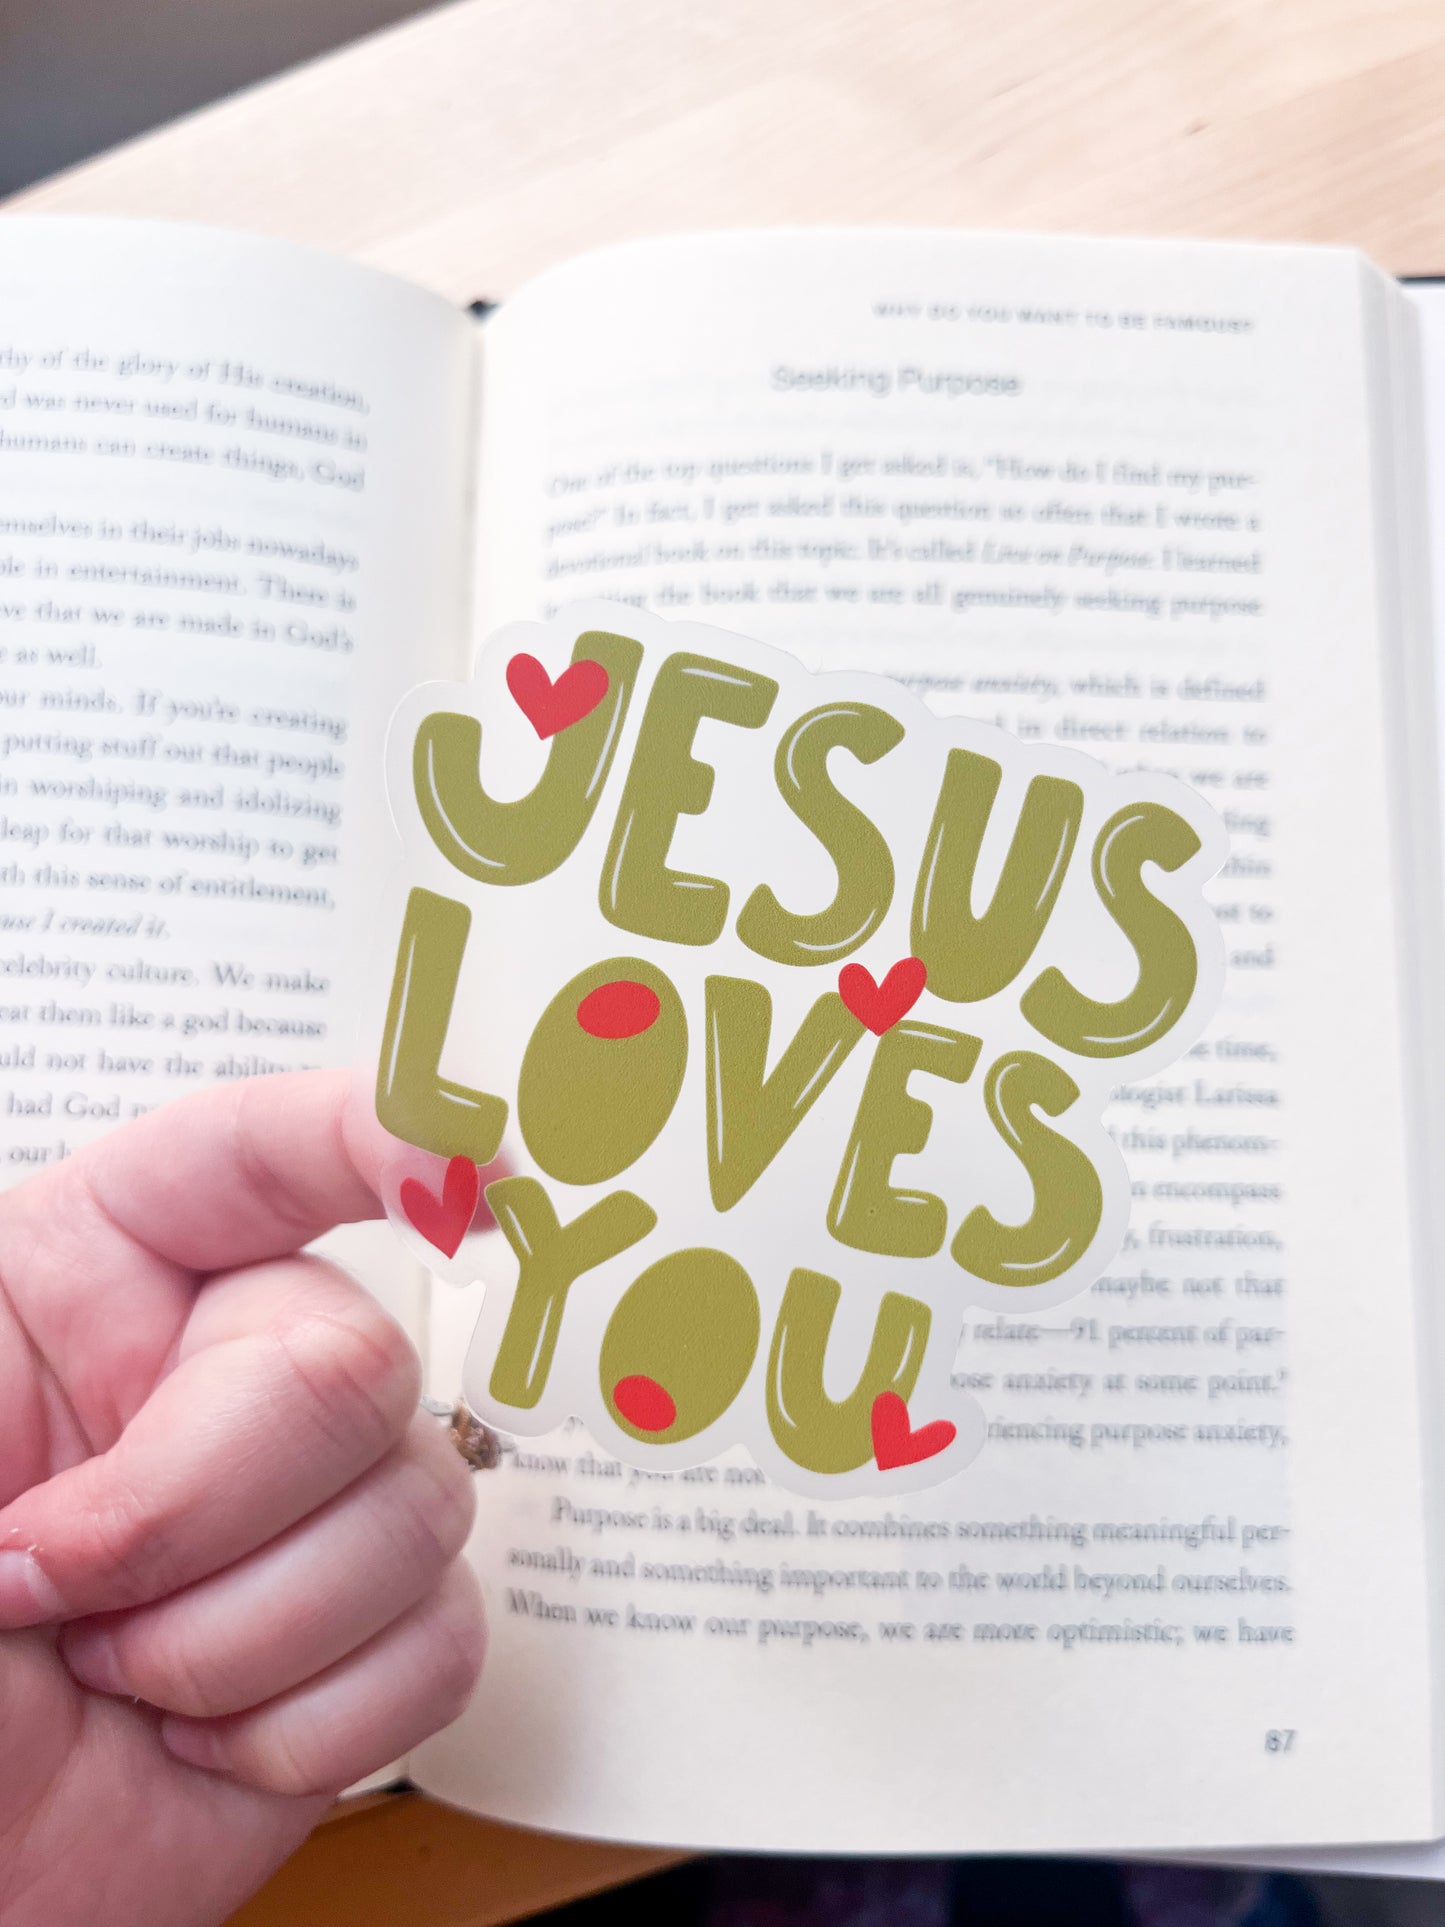 thy of the glory of His creation,
d was never used for humans in
humans can create things, God
emselves in their jobs nowadays
ple in entertainment. There is
eve that we are made in God's
e as well.
our minds. If you're creating
putting stuff out that people
in worshiping and idolizing
leap for that worship to get
th this sense of entitlement,
ause I created it.
celebrity culture. We make
eat them like a god because
uld not have the ability
had God
our
WHY DO YOU WANT TO BE FAMOUS?
Seeking Purpose
One of the top questions I get asked is, "How do I find my pur-
pose?" In fact, I get asked this question so often that I wrote a
devotional book on this topic. It's called Live on Purpose. I learned
the book that we are all genuinely seeking purpose
purpose anxiety, which is defined
in direct relation to
when we are
JESUS
LOVES
YOU
and
time,
ologist Larissa
this phenom-
encompass
frustration,
maybe not that
relate—91 percent of par-
ose anxiety at some point."
riencing purpose anxiety,
know that you are not
Purpose is a big deal. It combines something meaningful per-
sonally and something important to the world beyond ourselves.
When we know our purpose, we are more optimistic; we have
87